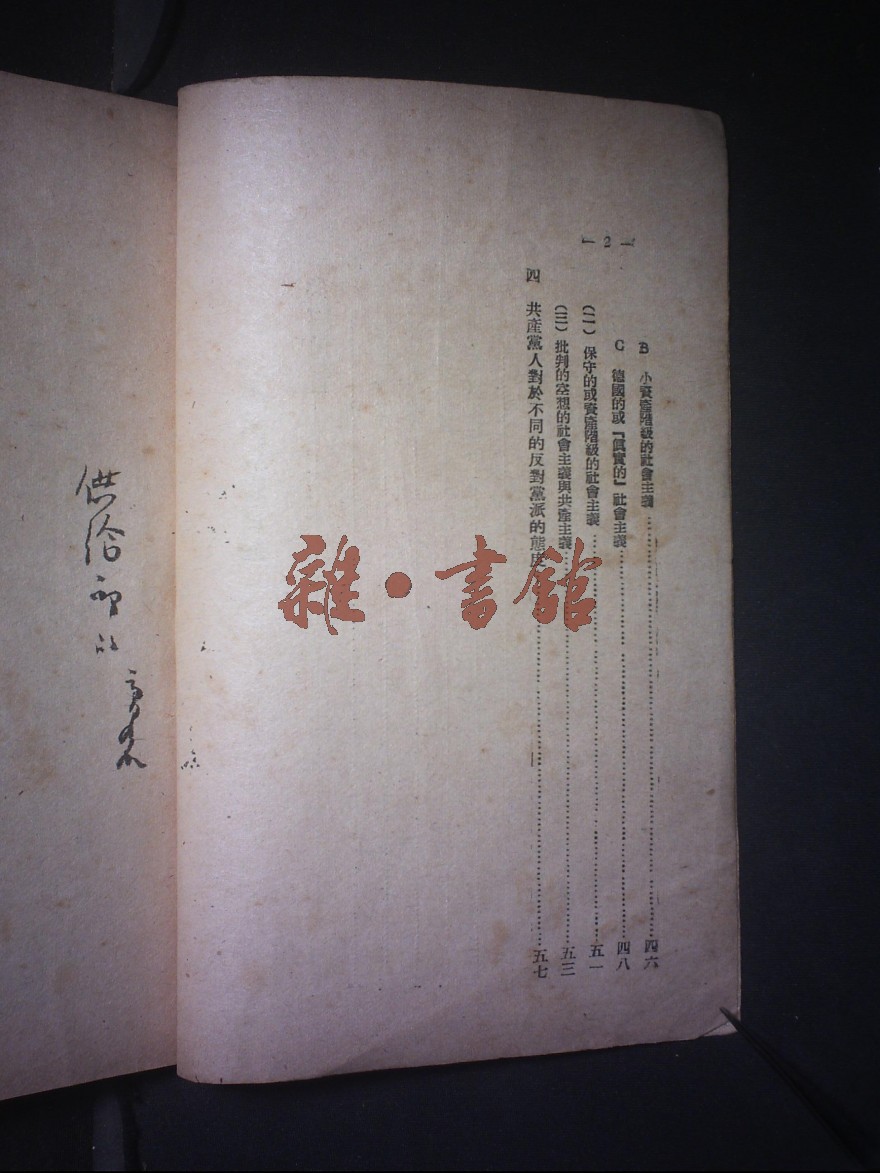 — 2 —
B 小資產階級的社會主義……四六
C 德國的或『眞實的』社會主義……四八
(二) 保守的或資產階級的社會主義……五一
(三) 批判的空想的社會主義與共產主義……五三
四 共產黨人對於不同的反對黨派的態度……五七
雜·書館
供給部